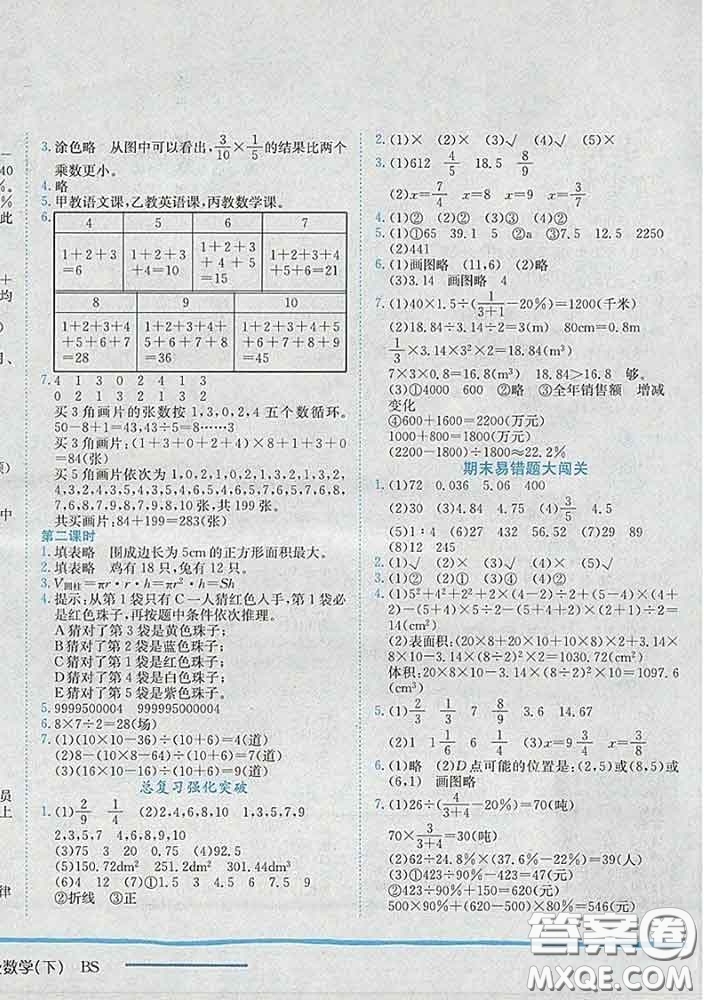 40
%。
%
此
+
均
、
)
中
员
上
律
3. 涂色略 从图中可以看出,3/10×1/5的结果比两个
乘数更小。
4. 略
5. 甲教语文课,乙教英语课,丙教数学课。
6.
4 5 6 7
1+2+3=6 1+2+3+4=10 1+2+3+4+5=15 1+2+3+4+5+6=21
8 9 10
1+2+3+4+5+6+7=28 1+2+3+4+5+6+7+8=36 1+2+3+4+5+6+7+8+9=45
7. 4 1 3 0 2 4 1 3
0 2 1 3 2 1 3 2
买 3 角画片的张数按 1,3,0,2,4 五个数循环。
50-8+1=43,43÷5=8……3
买 3 角画片:(1+3+0+2+4)×8+1+3+0
=84(张)
买 5 角画片依次为 1,0,2,1,0,2,1,3,2,1,3,2,
4,3,2,4,3,5,4,3,5,4,6,5,4,6,5,7,6,5,7,6,8,
7,6,8,7,9,8,7,9,8,10,9,8,10,9, 共 199 张。
共买画片:84+199=283(张)
第二课时
1. 填表略 围成边长为 5cm 的正方形面积最大。
2. 填表略 鸡有 18 只,兔有 17 只。
3. V圆柱=πr·r·h=πr²·h=Sh
4. 提示:从第 1 袋只有 C 一人猜红色入手,第 1 袋必
是红色珠子,再按题中条件依次推理。
A 猜对了第 3 袋是黄色珠子;
B 猜对了第 2 袋是蓝色珠子;
C 猜对了第 1 袋是红色珠子;
D 猜对了第 4 袋是白色珠子;
E 猜对了第 5 袋是紫色珠子。
5. 9999500004 999995000004
6. 8×7÷2=28(场)
7. (1)(10×10-36)÷(10+6)=4(道)
(2)8-(10×8-64)÷(10+6)=7(道)
(3)(16×10-16)÷(10+8)=8(道)
总复习强化突破
1. (1)2/9 1/4 (2)2,4,6,8,9,10 1,3,5,7,9
2,3,5,7 4,6,8,9,10
(3)75 3 20 0.75 (4)92.5
(5)150.72dm² 251.2dm² 301.44dm³
(6)4 12 (7)①1.5 3 4.5 9 6
②折线 ③正
2. (1)× (2)× (3)√ (4)√ (5)×
3. (1)612 4/5 18.5 8/9
(2)x=7/4 x=8 x=9 x=3/7
4. (1)② (2)② (3)③ (4)② (5)②
5. (1)①65 39.1 5 ②a ③7.5 12.5 2250
(2)441
6. (1)画图略 (11,6) (2)略
(3)3.14 画图略 4
7. (1)40×1.5÷(1/(3+1)-20%)=1200(千米)
(2)18.84÷3.14÷2=3(m) 80cm=0.8m
1/3×3.14×3²×2=18.84(m³)
7×3×0.8=16.8(m³) 18.84>16.8 够。
(3)①4000 ②略 ③全年销售额 增减
变化
④600+1600=2200(万元)
1000+800=1800(万元)
(2200-1800)÷1800≈22.2%
期末易错题大闯关
1. (1)72 0.036 5.06 400
(2)30 (3)4.84 4.75 (4)3/5 4/5
(5)1∶4 (6)27 432 56.52 (7)29 89
(8)12 245
2. (1)√ (2)× (3)× (4)× (5)√
3. (1)② (2)③ (3)④ (4)① (5)②
4. (1)5²+4²+2²+2×4÷2-(5+4)×5÷2-
(4+2)×4÷2+(5-4)×5÷2-(2+2)×2÷2=
14(cm²)
(2)表面积:(20×8+20×10+10×8)×2+
8×3.14×4-3.14×(8÷2)²×2=1030.72(cm²)
体积:20×8×10-3.14×(8÷2)²×10=1097.6
(cm³)
5. (1)2/3 1/3 7 8/9 3.6 14.67
(2)1 1 1/6 6 1/4 (3)x=9 3/4 x=33
6. (1)略 (2)D 点可能的位置是:(2,5)或(8,5)或
(6,1) 画图略
7. (1)26÷(4/(3+4)-20%)=70(吨)
70×3/(3+4)=30(吨)
(2)62÷24.8%×(37.6%-22%)=39(人)
(3)①423÷90%-423=47(元)
②423÷90%+150=620(元)
500×90%+(620-500)×80%=546(元)
数学(下) BS
答案卷
MXQE.COM